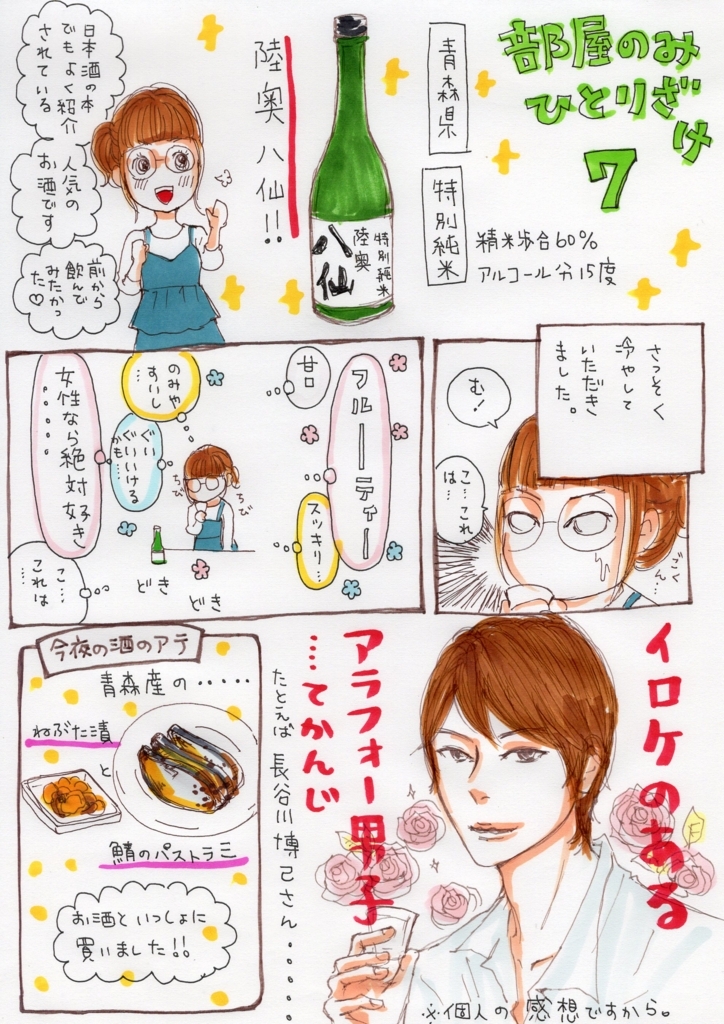 部屋のみ
ひとりざけ
7
青森県
特別純米
精米歩合60%
アルコール分15度
陸奥八仙!!
特別純米
陸奥
八仙
日本酒の本
でもよく紹介
されている
人気の
お酒です
前から
飲んで
みたかっ
た♡
さっそく
冷やして
いただき
ました。
む!
こ…これ
は…
ごくん…
フルーティー
スッキリ…
甘口
のみや
すいし…
ぐい
ぐいいける
かも…
女性なら絶対好き……
こ…
これは
…
ちび
ちび
どき
どき
イロケのある
アラフォー男子
…てかんじ
たとえば 長谷川博己さん……
※個人の感想ですから。
今夜の酒のアテ
青森産の・・・・・
ねぶた漬
と
鯖のパストラミ
お酒といっしょに
買いました!!